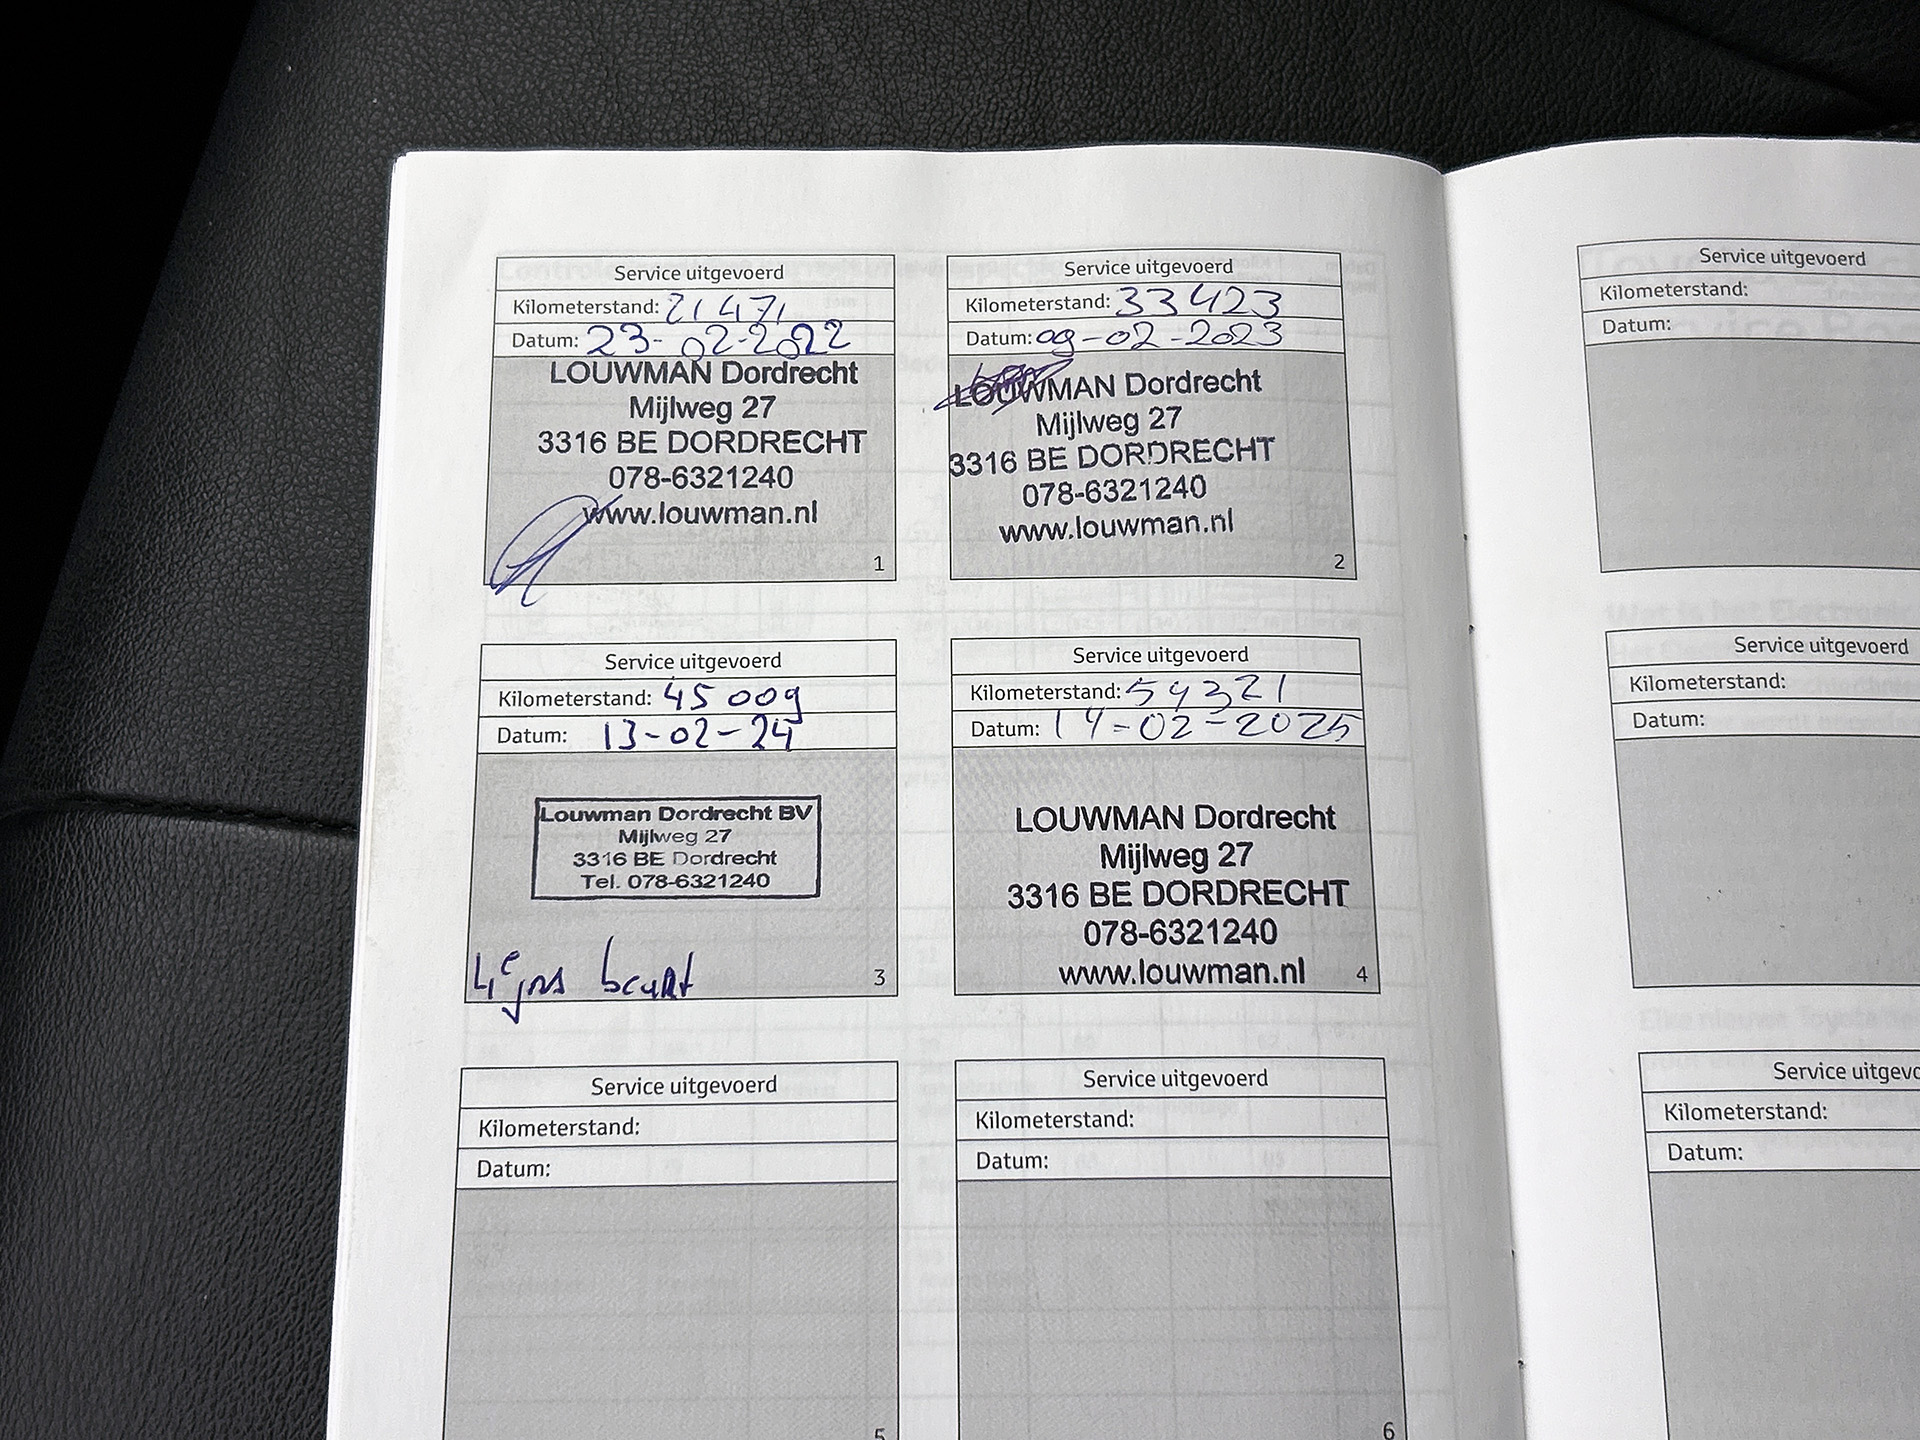 Service uitgevoerd
Kilometerstand: 21471
Datum: 23-02-2022
LOUWMAN Dordrecht
Mijlweg 27
3316 BE DORDRECHT
078-6321240
www.louwman.nl
1
Service uitgevoerd
Kilometerstand: 33423
Datum: 09-02-2023
LOUWMAN Dordrecht
Mijlweg 27
3316 BE DORDRECHT
078-6321240
www.louwman.nl
2
Service uitgevoerd
Kilometerstand: 45009
Datum: 13-02-24
Louwman Dordrecht BV
Mijlweg 27
3316 BE Dordrecht
Tel. 078-6321240
3
Service uitgevoerd
Kilometerstand: 54321
Datum: 14-02-2025
LOUWMAN Dordrecht
Mijlweg 27
3316 BE DORDRECHT
078-6321240
www.louwman.nl
4
Service uitgevoerd
Kilometerstand:
Datum:
5
Service uitgevoerd
Kilometerstand:
Datum:
6
Service uitgevoerd
Kilometerstand:
Datum:
Service uitgevoerd
Kilometerstand:
Datum:
Service uitgevo
Kilometerstand:
Datum: